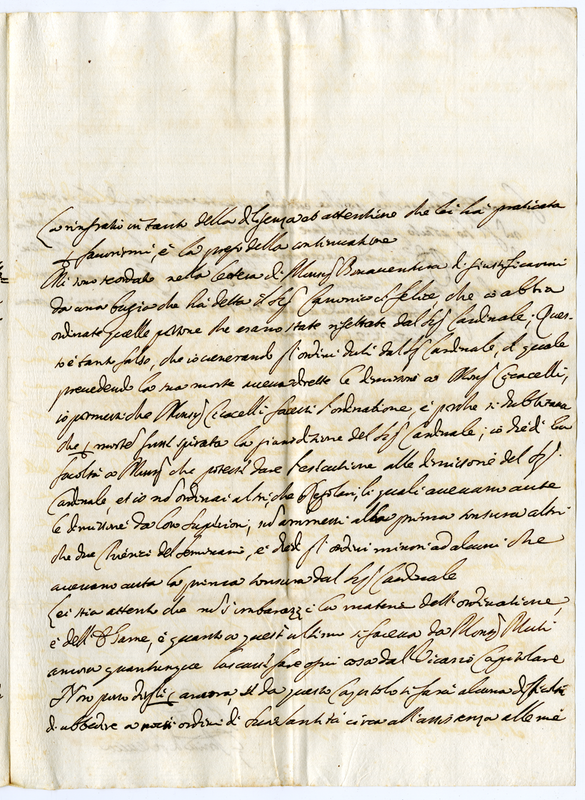 La ringratio in tanto della diligenza et attentione che lei ha praticata
e la prego della continuatione
Mi sono scordato nella lettera di Mons.r Bonaventura di giustificarmi
da una bugia che ha detta il Sig.r Canonico che io abbia
ordinate quelle persone che erano state rifettate dal Sig.r Cardinale; Ques-
to è tanto falso, che io venerando gl'ordini dati dal Sig.r Cardinale, il quale
prevedendo la sua morte aveva dirette le dimissorie a Mons.r
io permessi che Mons.r facesse l'ordinatione, e perche si dubitava
che morte fusse spirata la giurisdizione del Sig.r Cardinale; io diedi la
facoltà a Mons.r che potesse dare l'esecutione alle dimissorie del Sig.r
Cardinale, et io nō ordinai altri, che Regolari, li quali avevano avute
le dimissorie da loro Superiori, nō ammessi alla prima tonsura altri
che due del seminario, e diedi gl'ordini minori ad alcuni che
avevano auta la prima tonsura dal Sig.r Cardinale
Lei stia attento che nō s'imbarazzi la materia dell'ordinatione,
e dell' Esame, e quanto a quest'ultimo si faceva da Mons.r
ancora quantunque lasciasse fare ogni cosa dal Vicario Capitolare
Non puro ancora, se da questo Capitolo si farà alcuna difficoltà
di ubbedire a ordini di Sua Santità circa all'assistenza alle mie